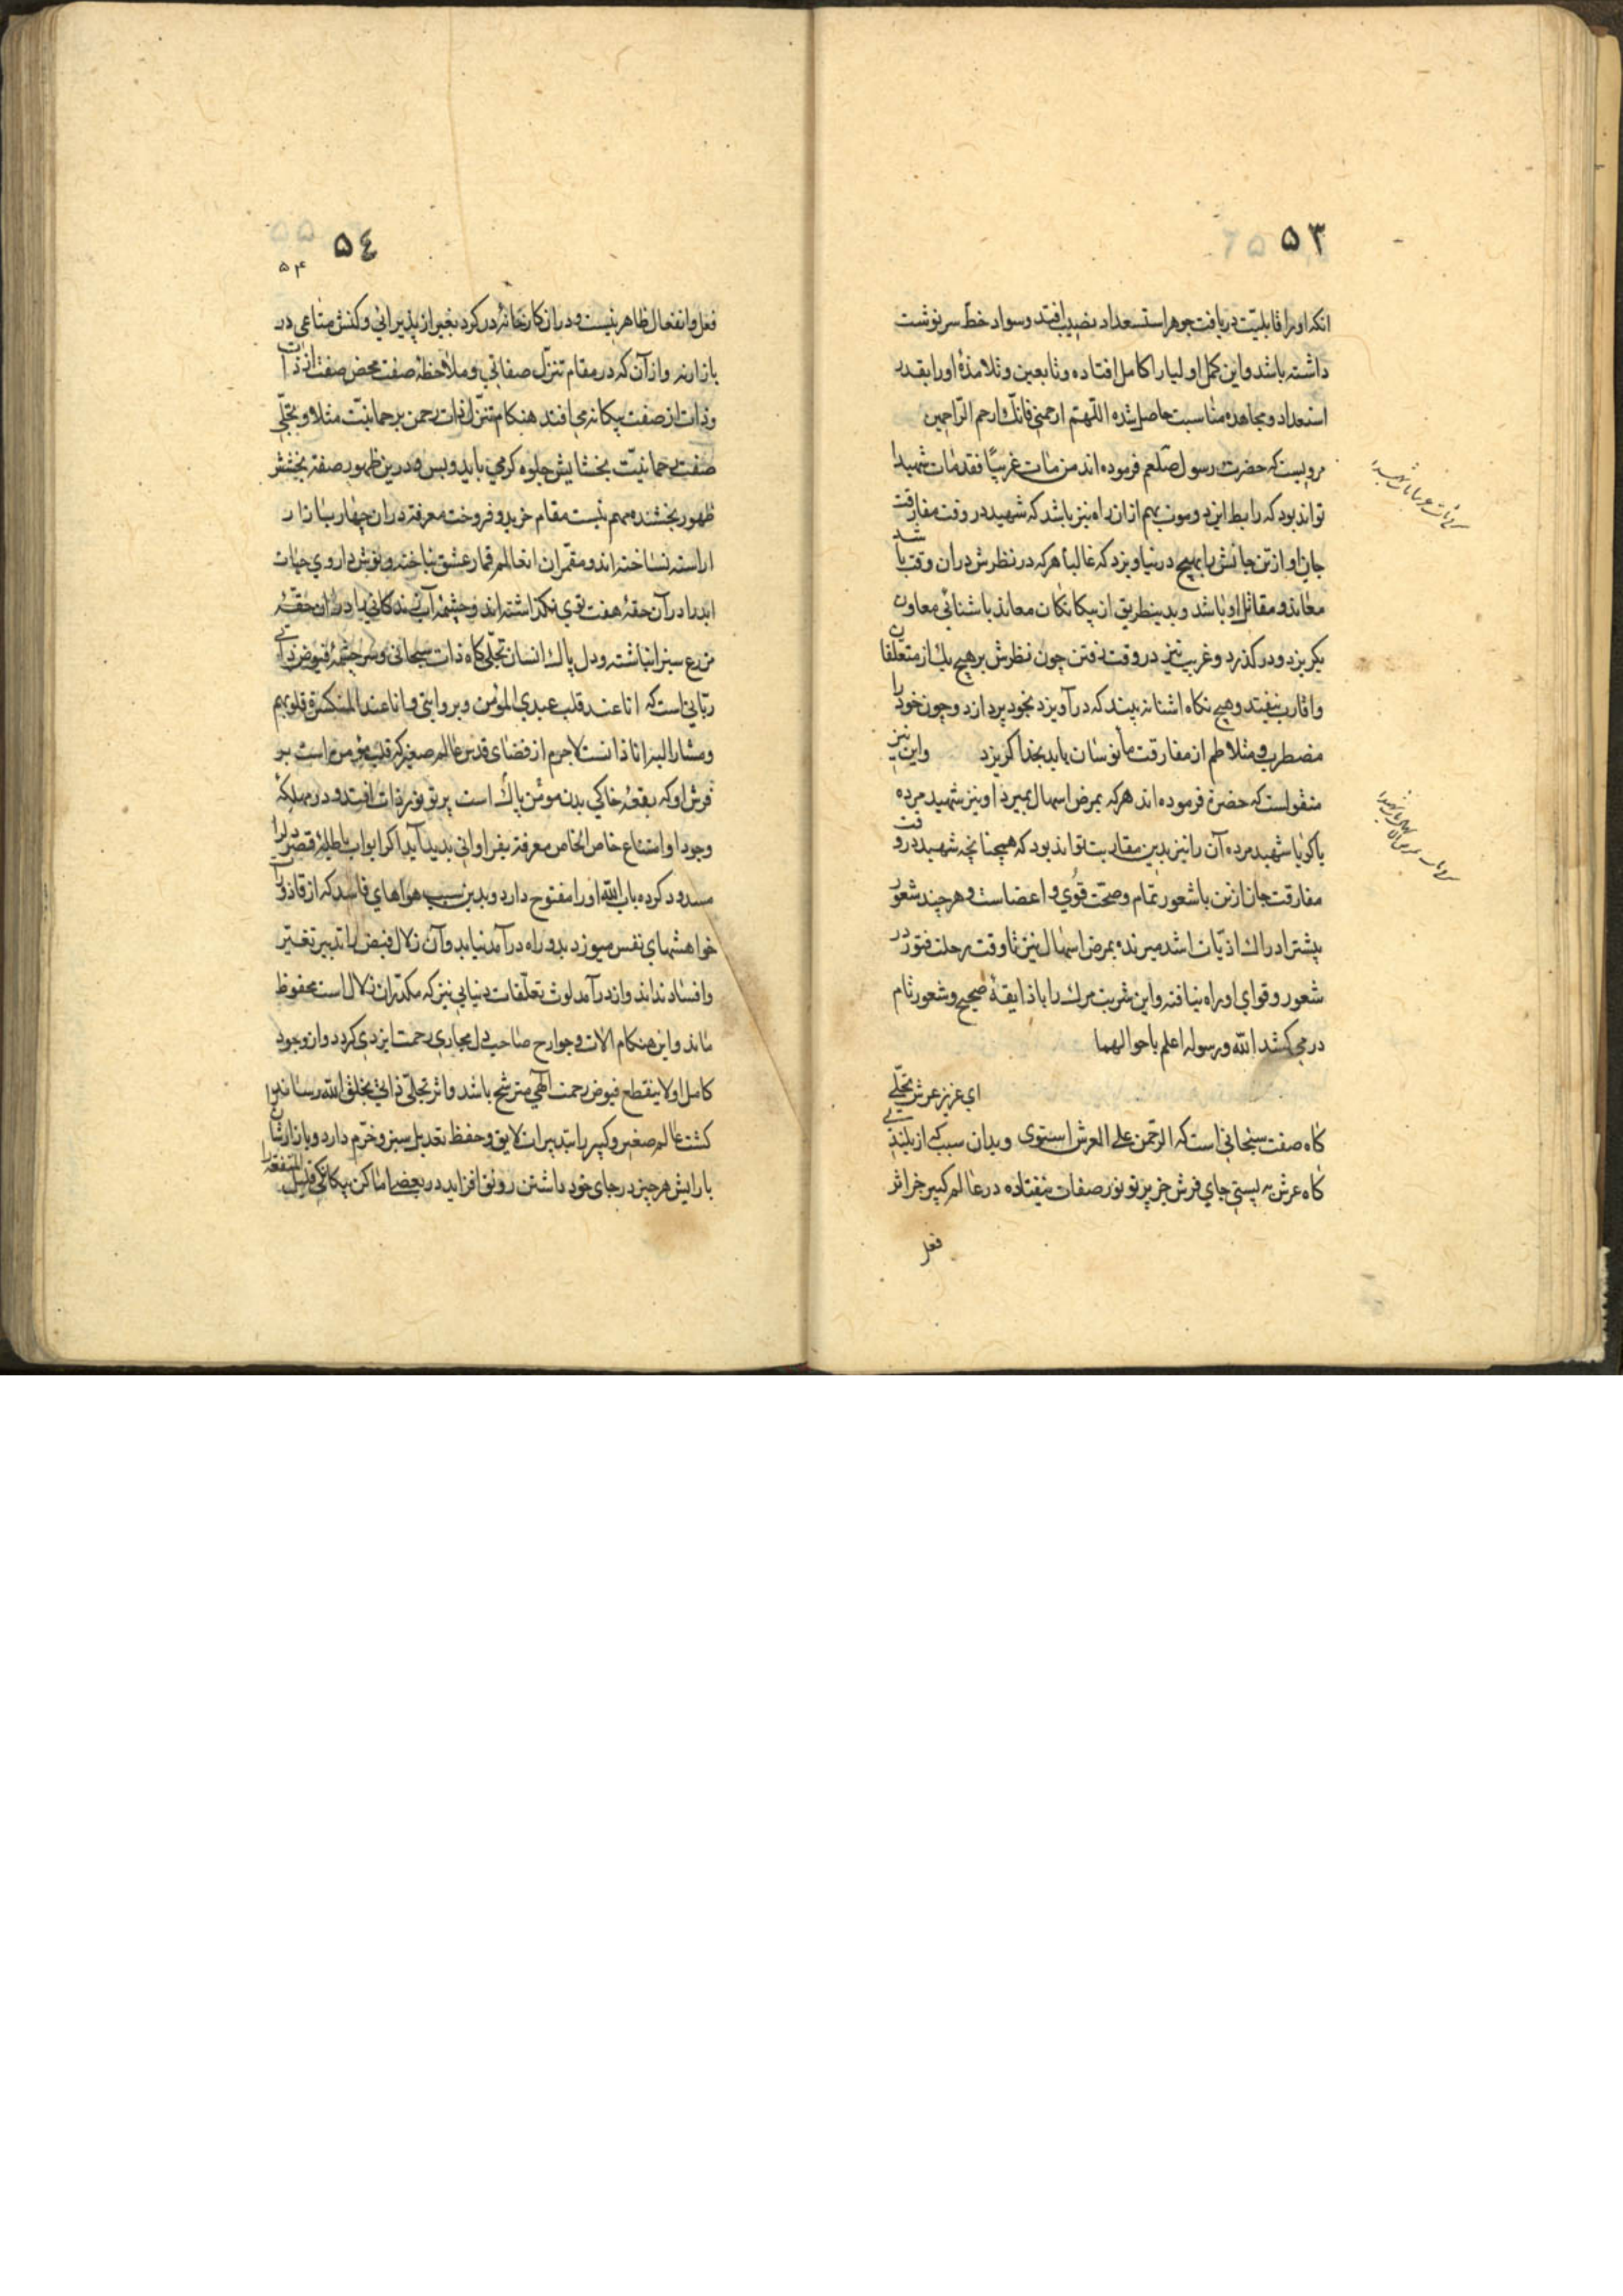 ۵۳
انکه او را قابلیّت دریافت جوهر استعداد نصیب افتد و سواد خطّ سرنوشت
داشته باشد و این کمل اولیا را کامل افتاده و تابعین و تلامذهٔ او را بقدر
استعداد و مجاهده مناسبت حاصل شده اللّهمّ ارحمنی فانّک ارحم الرّاحمین
مرویست که حضرت رسول صلعم فرموده اند من مات غریبًا فقد مات شهیدا
تواند بود که رابط این دو موت بهم ازان راه نیز باشد که شهید در وقت مفارقت
جان او از تن جانش را بهیچ در نیاویزد که غالباً هرکه در نظرش دران وقت باشد
معاند و مقاتل او باشد و بدینطریق از بیکانکان معاند باشنائی معاون
بکریزد و در کذرد و غریب نیز در وقت رفتن چون نظرش بر هیچ یک از متعلقان
و اقارب نیفتد و هیچ نکاه اشنا نه بیند که درآویزد بخود پردازد و چون خود را
مضطرب و متلاطم از مفارقت مأنوسان یابد بخدا کریزد واین نیز
منقولست که حضرة فرموده اند هرکه بمرض اسهال بمیرد او نیز شهید مرده
یا کویا شهید مرده آن را نیز بدین مقاربت تواند بود که همچنانچه شهید در وقت
مفارقت جان از تن با شعور تمام و صحّت قوی و اعضاست و هرچند شعور
بیشتر ادراک اذیّات اشد میرنده بمرض اسهال نیز تا وقت رحلت فتور در
شعور و قوای او راه نیافته و این شربت مرک را با ذایقهٔ صحیح و شعور تام
در می کشد الله و رسوله اعلم باحوالهما
ای عزیز عرش تجلّی
کاه صفت سبحانی است که الرّحمن علی العرش استوی و بدان سبب که از بلندی
کاه عرش به پستی جای فرش جز پرتو نور صفات نیفتاده در عالم کبیر جز اثر
فعل
۵٤
۵۴
فعل و انفعال ظاهر نیست و دران کارخانهٔ در کرد بغیر از پذیرائی و کنش متاعی در
بازار نه و ازآن که در مقام تنزّل صفاتی و ملاحظهٔ صفت محض صفت از ذات
و ذات از صفت بیکانه می افتد هنکام تنزّل ذات رحمن برحمانیّت مثلا و تجلّی
صفت رحمانیّت بخشایش جلوه کر می باید و بس و درین ظهور صفة بخشش
ظهور بخشنده مهم نیست مقام خرید و فروخت معرفة دران چهار بازار
اراسته نساخته اند و مقمّران انعالم قمار عشق نباخته و نوش داروی حیات
ابد را در آن حقهٔ هفت توی نکذاشته اند و چشمهٔ آب زندکانی را در ان حقهٔ
مزرع سبز انباشته و دل پاک انسان تجلّی کاه ذات سبحانی و سرچشمهٔ فیوض ذاتی
ربّانی است که انا عند قلب عبدی المؤمن و بروایتی و انا عند المنکسرة قلوبهم
و مشار الیه انا ذانست لاجرم از فضای قدس عالم صغیر که قلب مؤمن است بر
فرش او که بقعهٔ خاکی بدن مومن پاک است پرتو نور ذات افتد و در مهلکهٔ
وجود او امتناع خاص الخاص معرفة بفراوانی بدید آید اکر ابواب باطلهٔ قصر دل را
مسدود کرده باب الله او را مفتوح دارد و بدین سبب هواهای فاسد که از قاذورات
خواهشهای نفس میوزد بدو راه درآمد نیابد وآن زلال فیض را تدبیر تغییر
و افساد نداند و از درآمد لوث تعلّقات دنیایی نیز که مکدّر ان زلال است محفوظ
ماند و این هنکام الات و جوارح صاحب دل مجاری رحمت ایزدی کردد و از وجود
کامل او لا ینقطع فیوض رحمت الهی مترشح باشد و اثر تجلّی ذاتی بخلق الله رساند
کشت عالم صغیر و کبیر را بتدبیرات لایق و حفظ تعدیل سبز و خرّم دارد و بازارشان
بارایش هر چیز در جای خود داشتن رونق افزاید در بعضی اماکن بیکانکی قلیل المنفعة را